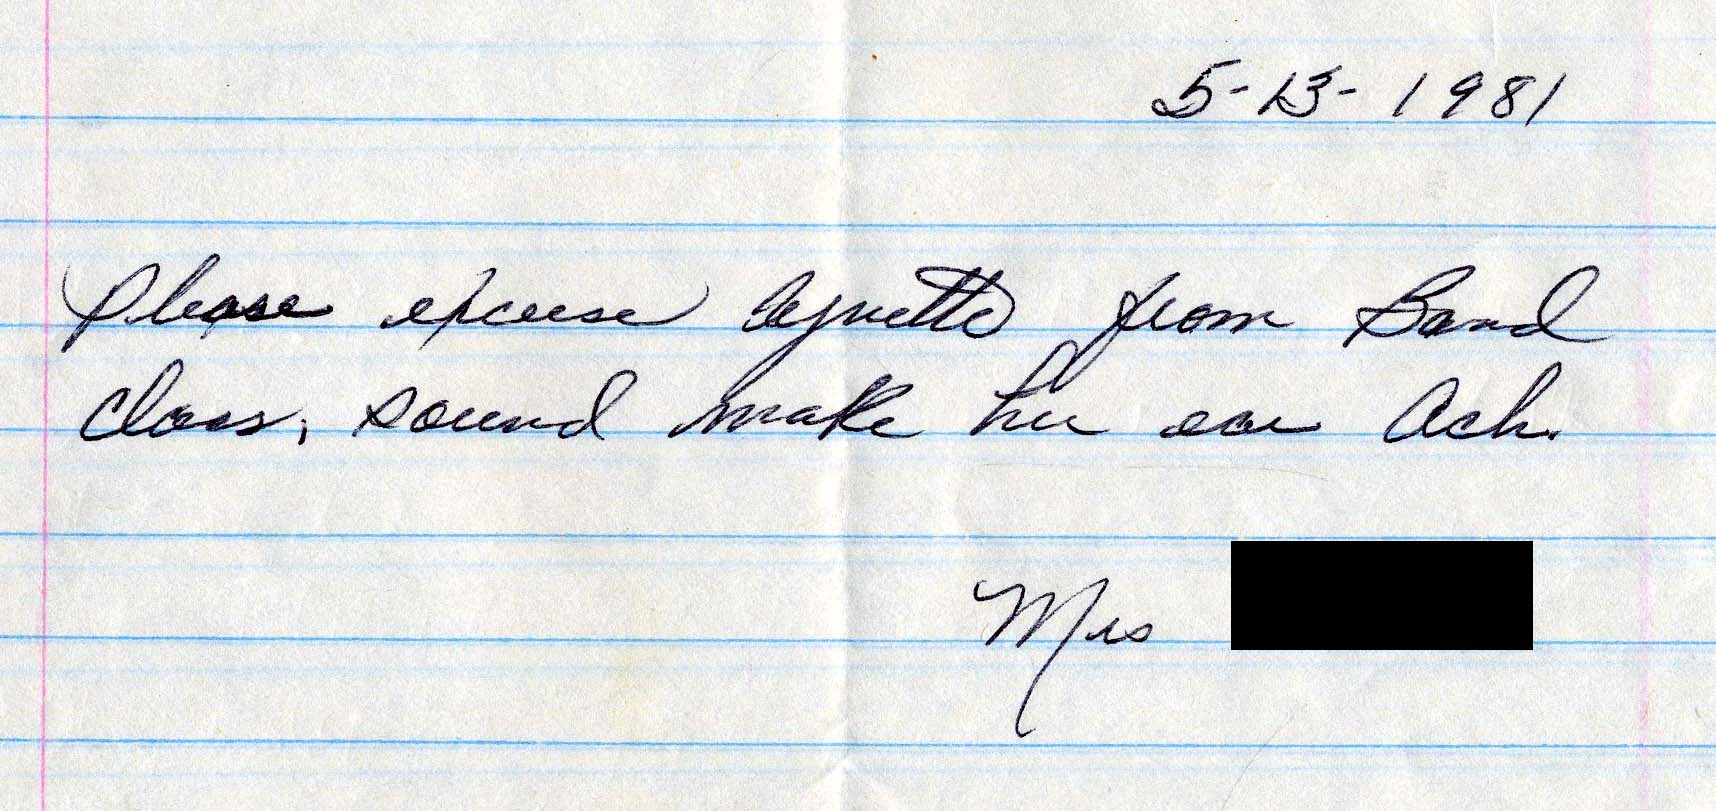 5-13-1981
Please excuse Lynette from Band
class, sound make her ear Ach.
Mrs